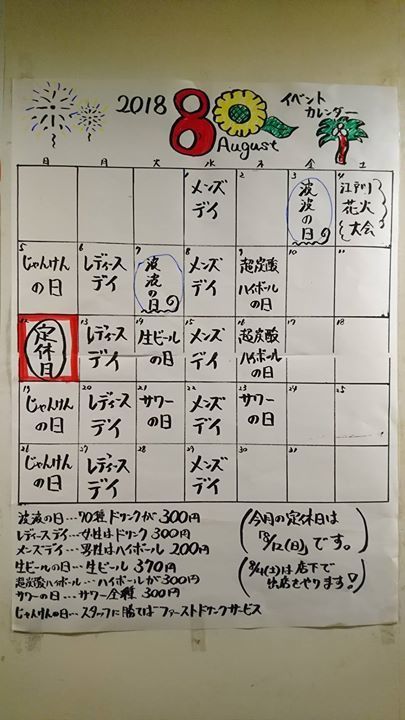 2018 8 August
イベント
カレンダー
日 月 火 水 木 金 土
1 メンズデイ
2
3 波波の日
4 江戸川花火大会
5 じゃんけんの日
6 レディースデイ
7 波波の日
8 メンズデイ
9 超炭酸ハイボールの日
10
11
12 定休日
13 レディースデイ
14 生ビールの日
15 メンズデイ
16 超炭酸ハイボールの日
17
18
19 じゃんけんの日
20 レディースデイ
21 サワーの日
22 メンズデイ
23 サワーの日
24
25
26 じゃんけんの日
27 レディースデイ
28
29 メンズデイ
30
31
波波の日…70種ドリンクが300円
レディースデイ…女性はドリンク300円
メンズデイ…男性はハイボール200円
生ビールの日…生ビール370円
超炭酸ハイボール…ハイボールが300円
サワーの日…サワー全種300円
じゃんけんの日…スタッフに勝てばファーストドリンクサービス
今月の定休日は
「8/12(日)」です。
8/4(土)は店下で
出店をやります!